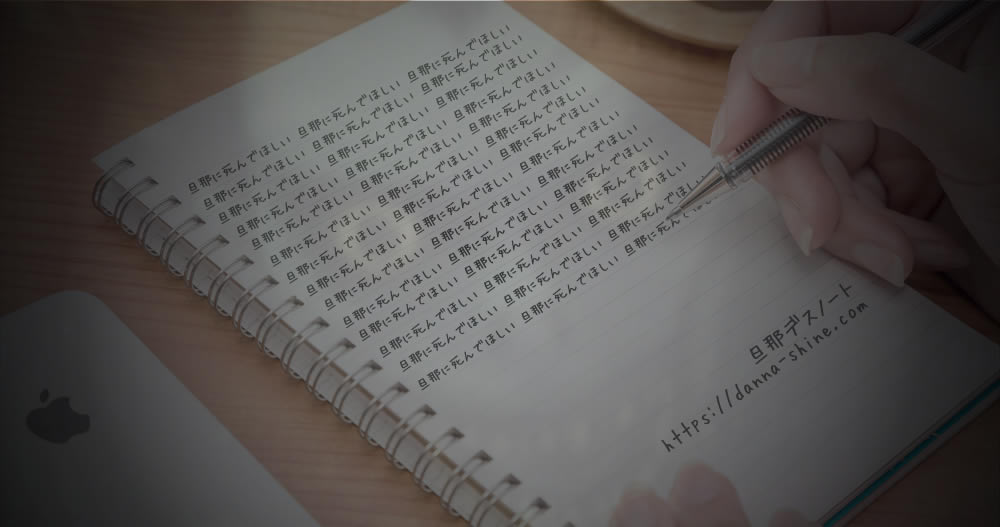 旦那に死んでほしい 旦那に死んでほしい 旦那に死んでほしい
旦那に死んでほしい 旦那に死んでほしい 旦那に死んでほしい
旦那に死んでほしい 旦那に死んでほしい 旦那に死んでほしい
旦那に死んでほしい 旦那に死んでほしい 旦那に死んでほしい
旦那に死んでほしい 旦那に死んでほしい 旦那に死んでほしい
旦那に死んでほしい 旦那に死んでほしい 旦那に死んでほしい
旦那に死んでほしい 旦那に死んでほしい 旦那に死んでほしい
旦那に死んでほしい 旦那に死んでほしい 旦那に死んでほしい
旦那に死んでほしい 旦那に死んでほしい 旦那に死んでほしい
旦那に死んでほしい 旦那に死んでほしい 旦那に死んでほしい
旦那に死んでほしい 旦那に死んでほしい 旦那に死んでほしい
旦那に死んでほしい 旦那に死んでほしい 旦那に死んでほしい
旦那に死んでほしい 旦那に死んでほしい 旦那に死んで
旦那デスノート
https://danna-shine.com